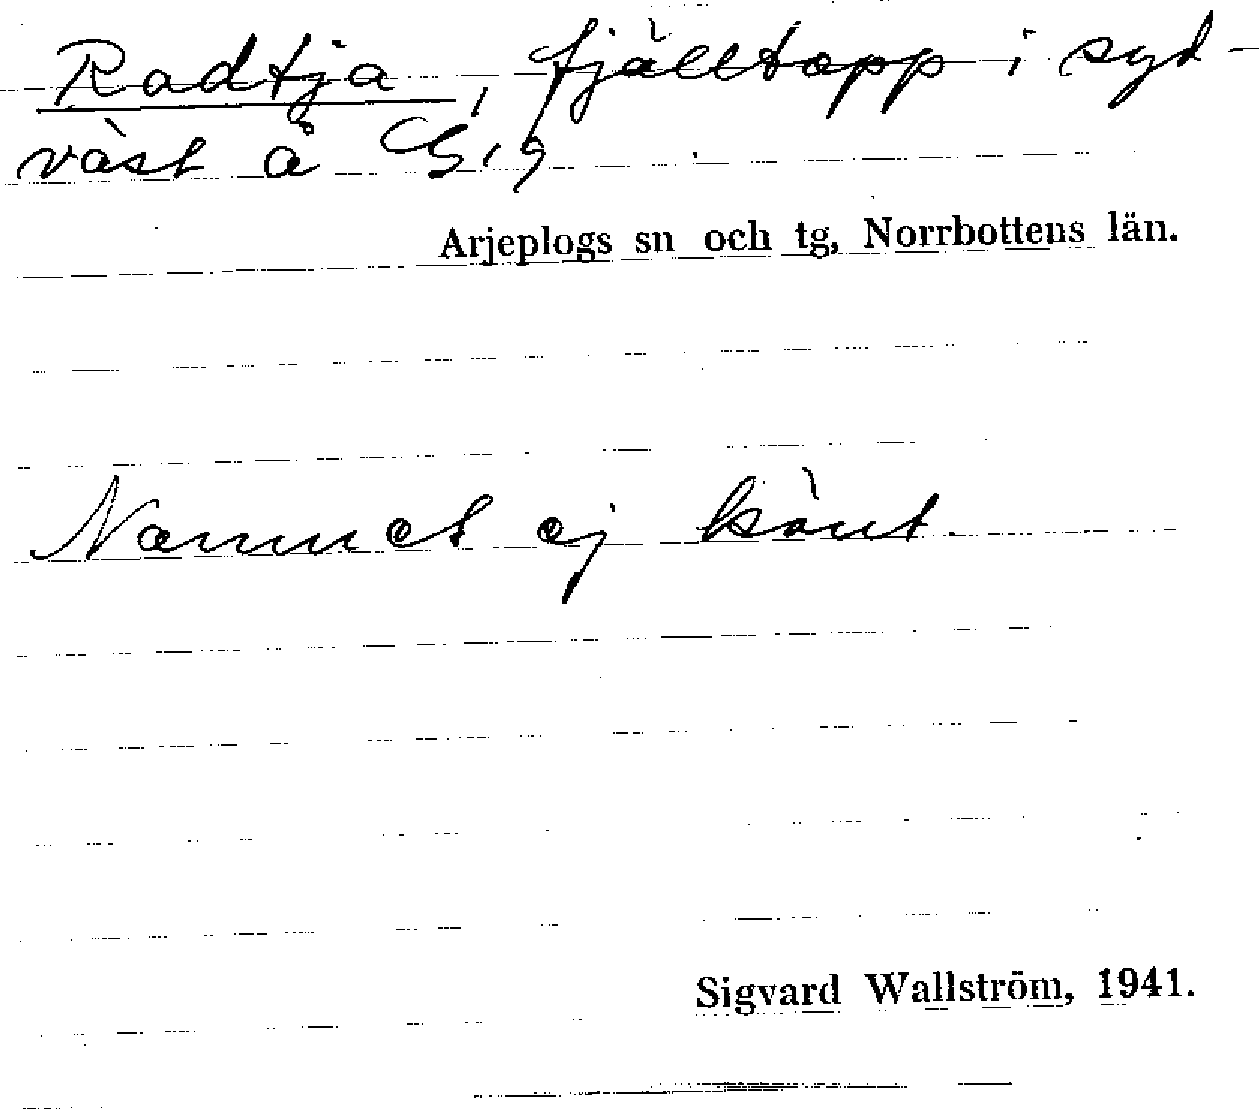 Radtja, fjälltopp i syd-
väst å G,9
Arjeplogs sn och tg, Norrbottens län.
Namnet ej känt.
Sigvard Wallström, 1941.